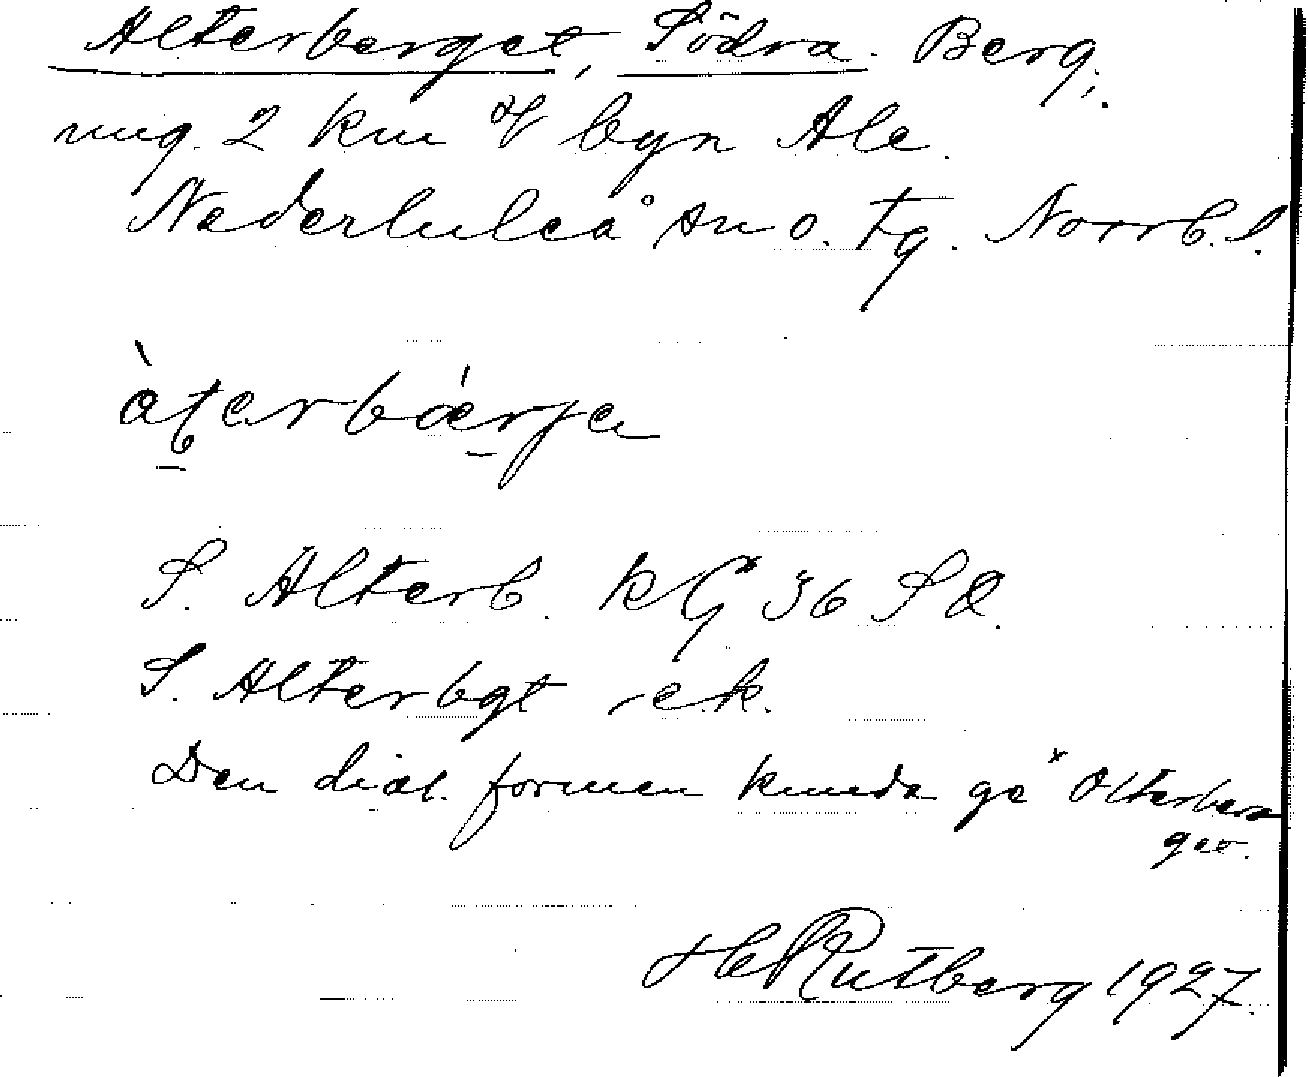 Alterberget, Södra. Berg;
ung. 2 km V byn Ale.
Nederluleå sn o. tg. Norrb. l.
àt̠erbǽrje
S. Alterb. KG 36 SO.
S. Alterbgt ek.
Den dial. formen kunde ge *Olterber
get.
HRutberg 1927.